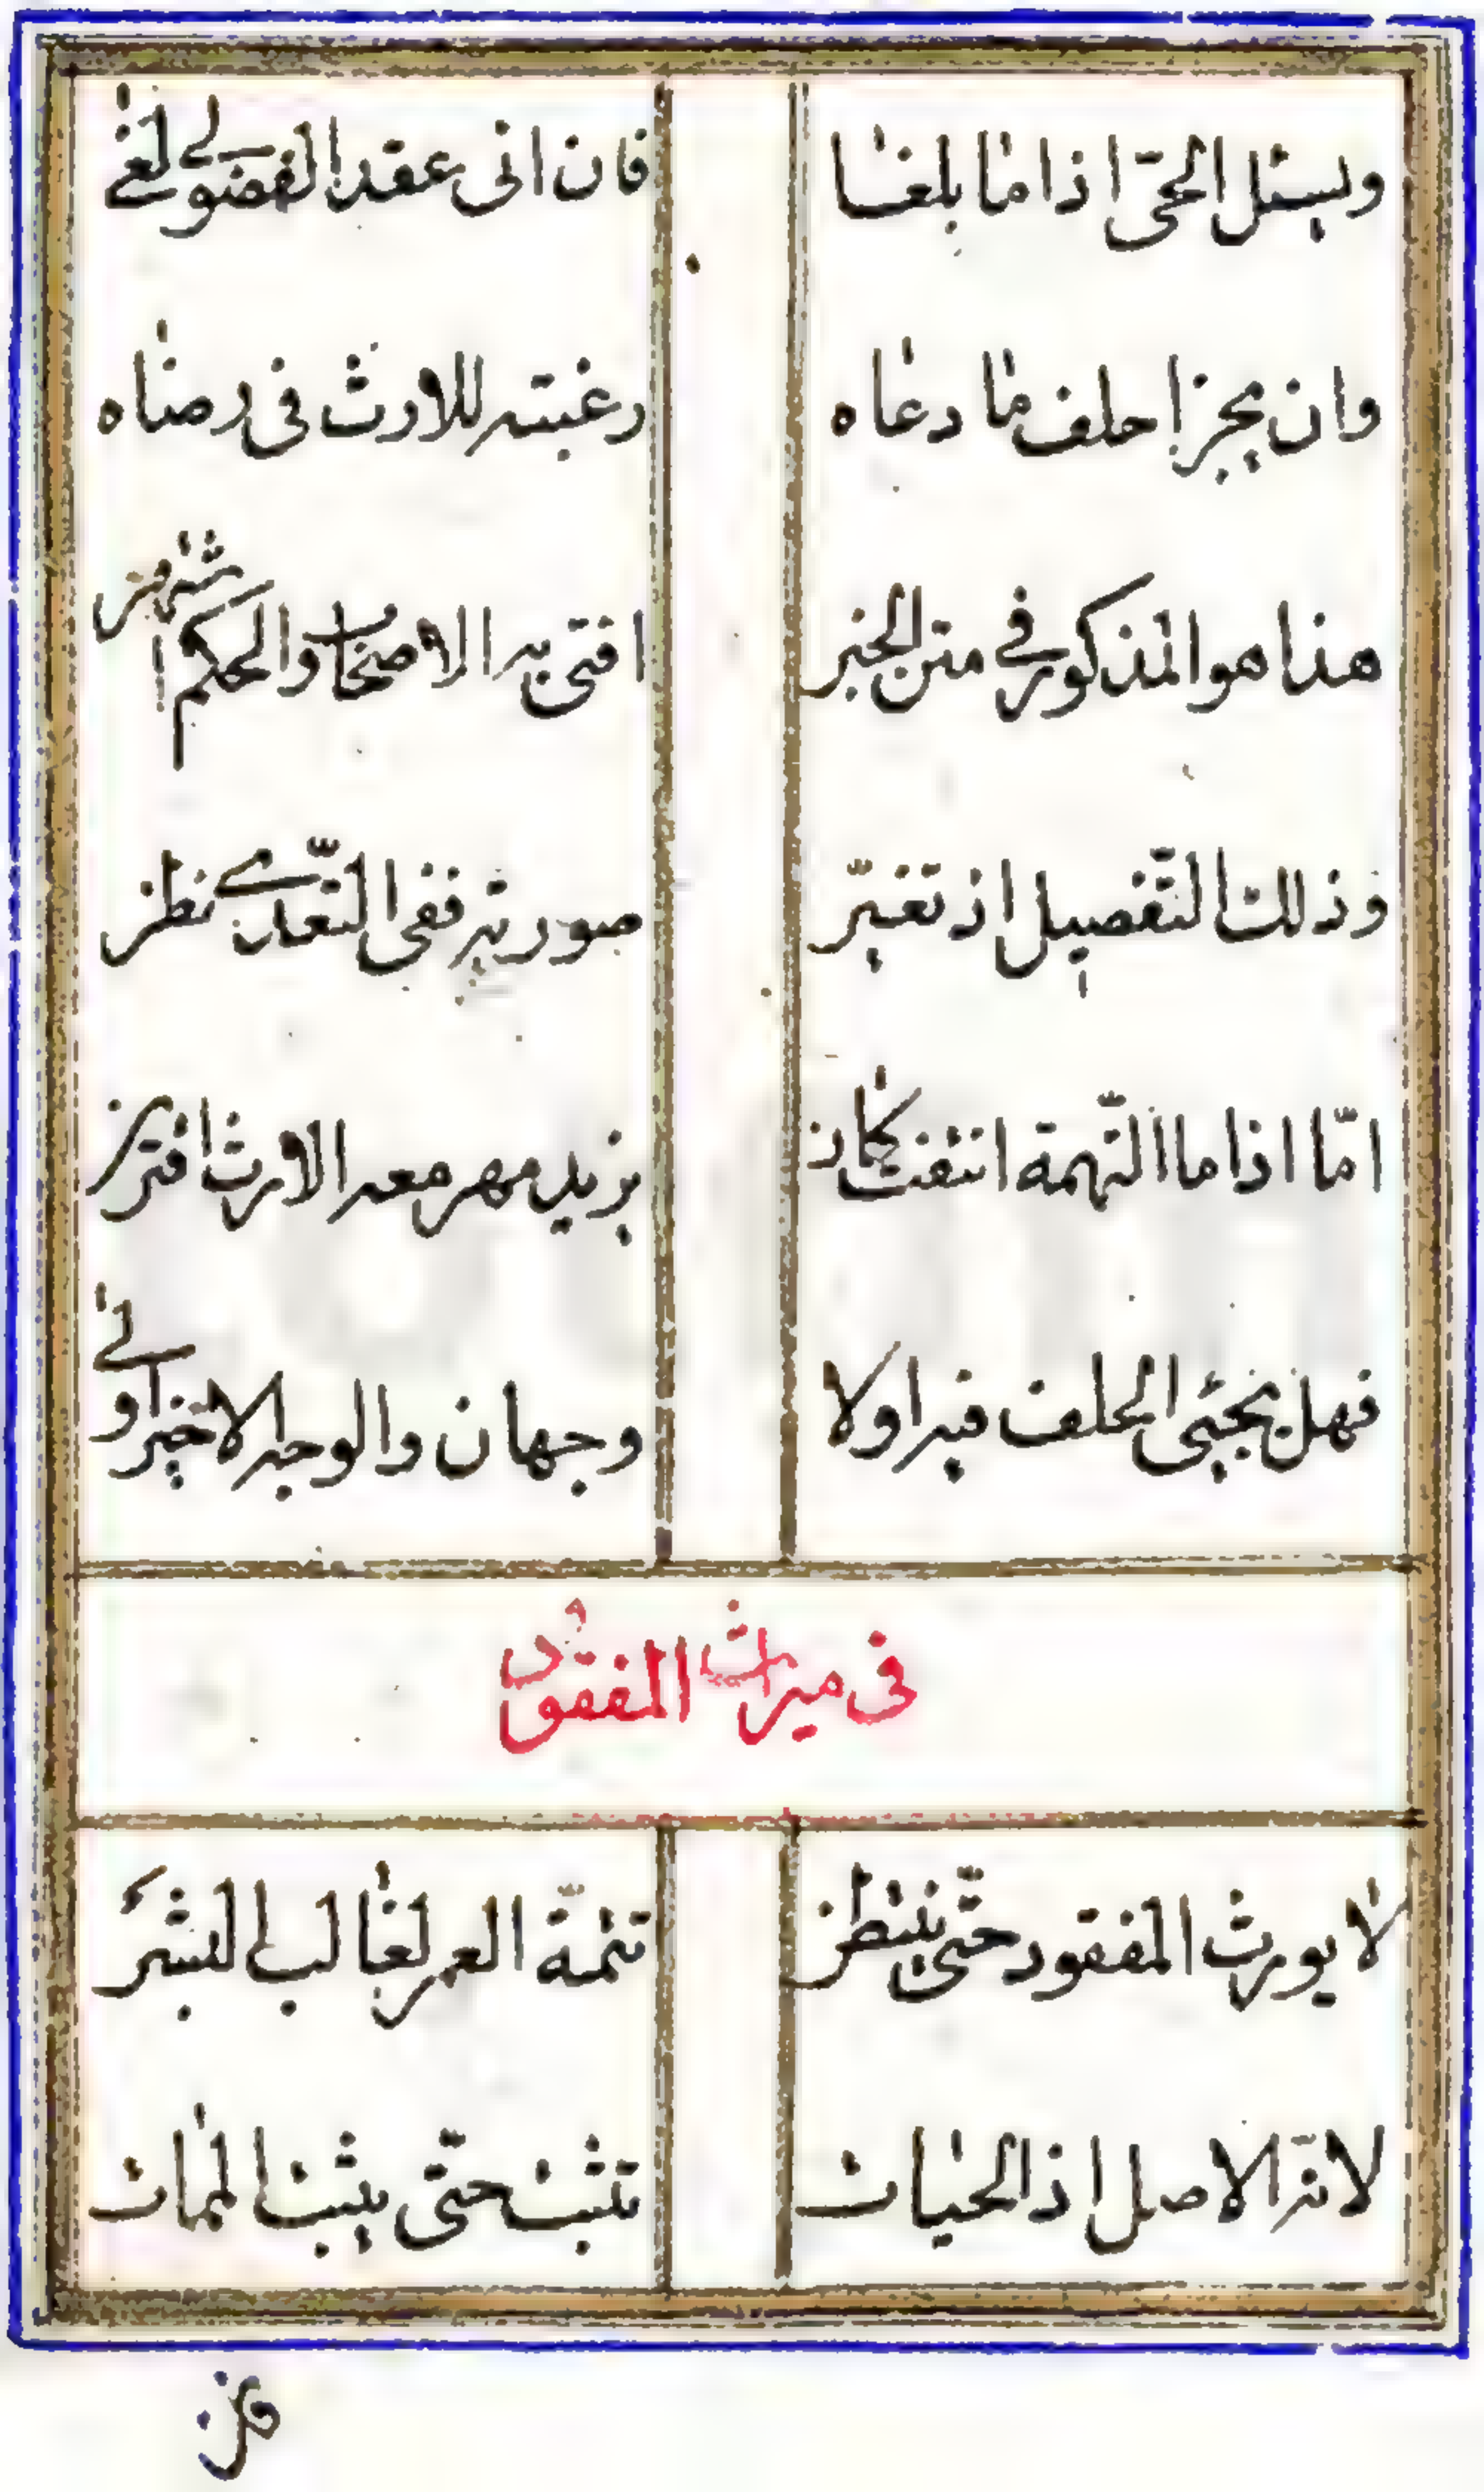 ويسئل الحىّ اذا ما بلغا فان ابى عقد الفضولي لغى
وان يجز احلف ما دعاه رغبته للارث فى رضاه
هذا هو المذكور في متن الخبر افتى به الاصحاب والحكم اشتهر
وذلك التّفصيل اذ تغيّر صورته ففى التّعدي نظر
امّا اذا ما التّهمة انتفت كان يزيد مهر معه الارث اقترن
فهل يجئى الحلف فيه اولا وجهان والوجه الاخير اولى
فى ميراث المفقود
لا يورث المفقود حتّى ينتظر تتمّة العمر لغالب البشر
لانه الاصل اذ الحيات تثبت حتّى يثبت الممات